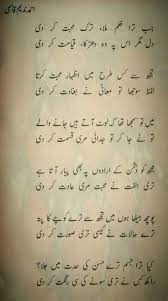 احمد ندیم قاسمی
جب ترا حکم ملا، ترک محبت کر دی
دل مگر اس پہ وہ دھڑکا، قیامت کر دی
تجھ سے کس طرح میں اظہار محبت کرتا
لفظ سوجھا تو معانی نے بغاوت کر دی
میں تو سمجھا تھا کہ لوٹ آتے ہیں جانے والے
تو نے جا کر تو جدائی مری قسمت کر دی
مجھ کو دشمن کے ارادوں پہ بھی پیار آتا ہے
تری الفت نے محبت مری عادت کر دی
پوچھ بیٹھا ہوں میں تجھ سے ترے کوچے کا پتہ
تیرے حالات نے کیسی تری صورت کر دی
کیا ترا جسم ترے حسن کی حدت میں جلا؟
راکھ کس نے تری سونے کی سی رنگت کر دی